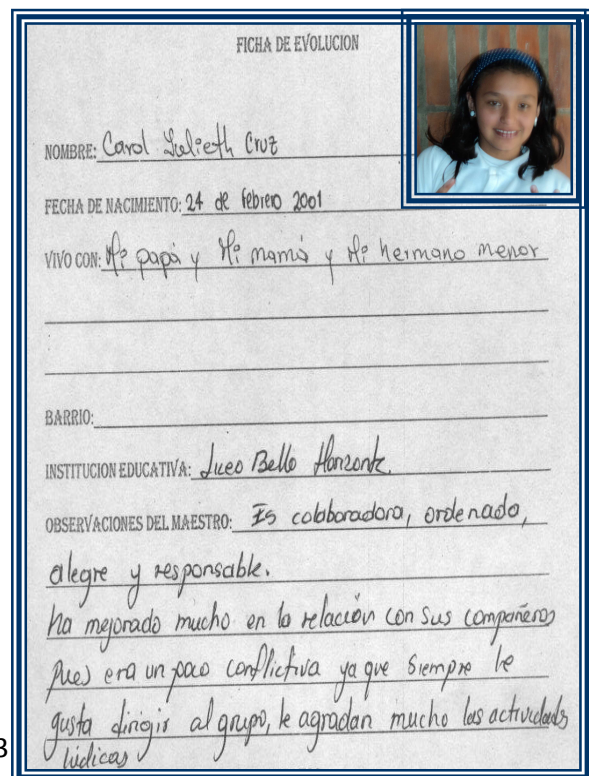 FICHA DE EVOLUCION
NOMBRE: Carol Julieth Cruz
FECHA DE NACIMIENTO: 24 de febrero 2001
VIVO CON: Mi papá y Mi mamá y Mi hermano menor
BARRIO:
INSTITUCION EDUCATIVA: Liceo Bello Horizonte.
OBSERVACIONES DEL MAESTRO: Es colaboradora, ordenado,
alegre y responsable.
ha mejorado mucho en la relación con sus compañeros
pues era un poco conflictiva ya que siempre le
gusta dirigir al grupo, le agradan mucho las actividades
lúdicas
3